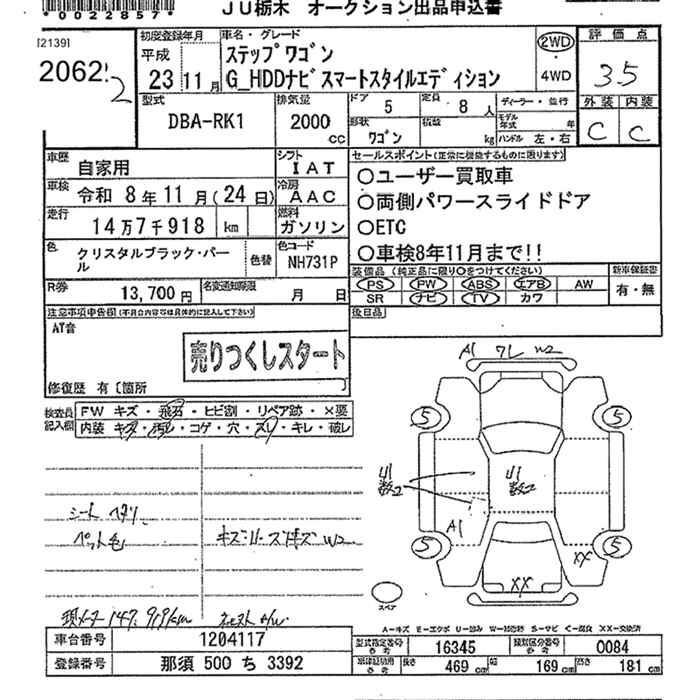 0022857
JU栃木 オークション出品申込書
[2139]
2062
2
初度登録年月
平成
23 11 月
車名・グレード
ステップワゴン
G_HDDナビスマートスタイルエディション
2WD
4WD
評価点
3.5
外装 内装
C C
型式
DBA-RK1
排気量
2000
CC
ドア
5
定員
8 人
形状
ワゴン
積載
kg
ディーラー・並行
モデル年式 年
ハンドル 左・右
車歴
自家用
シフト
I A T
車検
令和 8 年 11 月 (24 日)
冷房
A A C
走行
14 万 7 千 918 km
燃料
ガソリン
色
クリスタルブラック・パール
色替
色コード
NH731P
R券
13,700 円
名変通知期限
月 日
セールスポイント(正常に機能するものに限ります)
○ユーザー買取車
○両側パワースライドドア
○ETC
○車検8年11月まで!!
装備品 (純正品に限り○をつけてください)
PS PW ABS エアB AW
SR ナビ TV カワ
新車保証書
有・無
後日品
注意事項申告欄(不具合内容等は具体的に記入して下さい)
AT音
売りつくしスタート
修復歴 有 〔箇所 〕
検査員記入欄
FW キズ・飛石・ヒビ割・リペア跡・×要
内装 キズ・汚れ・コゲ・穴・スレ・キレ・破レ
シート ヘタリ
ペット毛
W2
147,919km
A1 ワレ W2
5 5
A1
5 5
XX
XX
スペア
A-キズ E-エクボ U-凹み W-補修跡 S-サビ C-腐食 XX-交換済
車台番号 1204117
登録番号 那須 500 ち 3392
型式指定番号 参考 16345
類別区分番号 参考 0084
車体証明用 参考 長さ 469 cm 幅 169 cm 高さ 181 cm